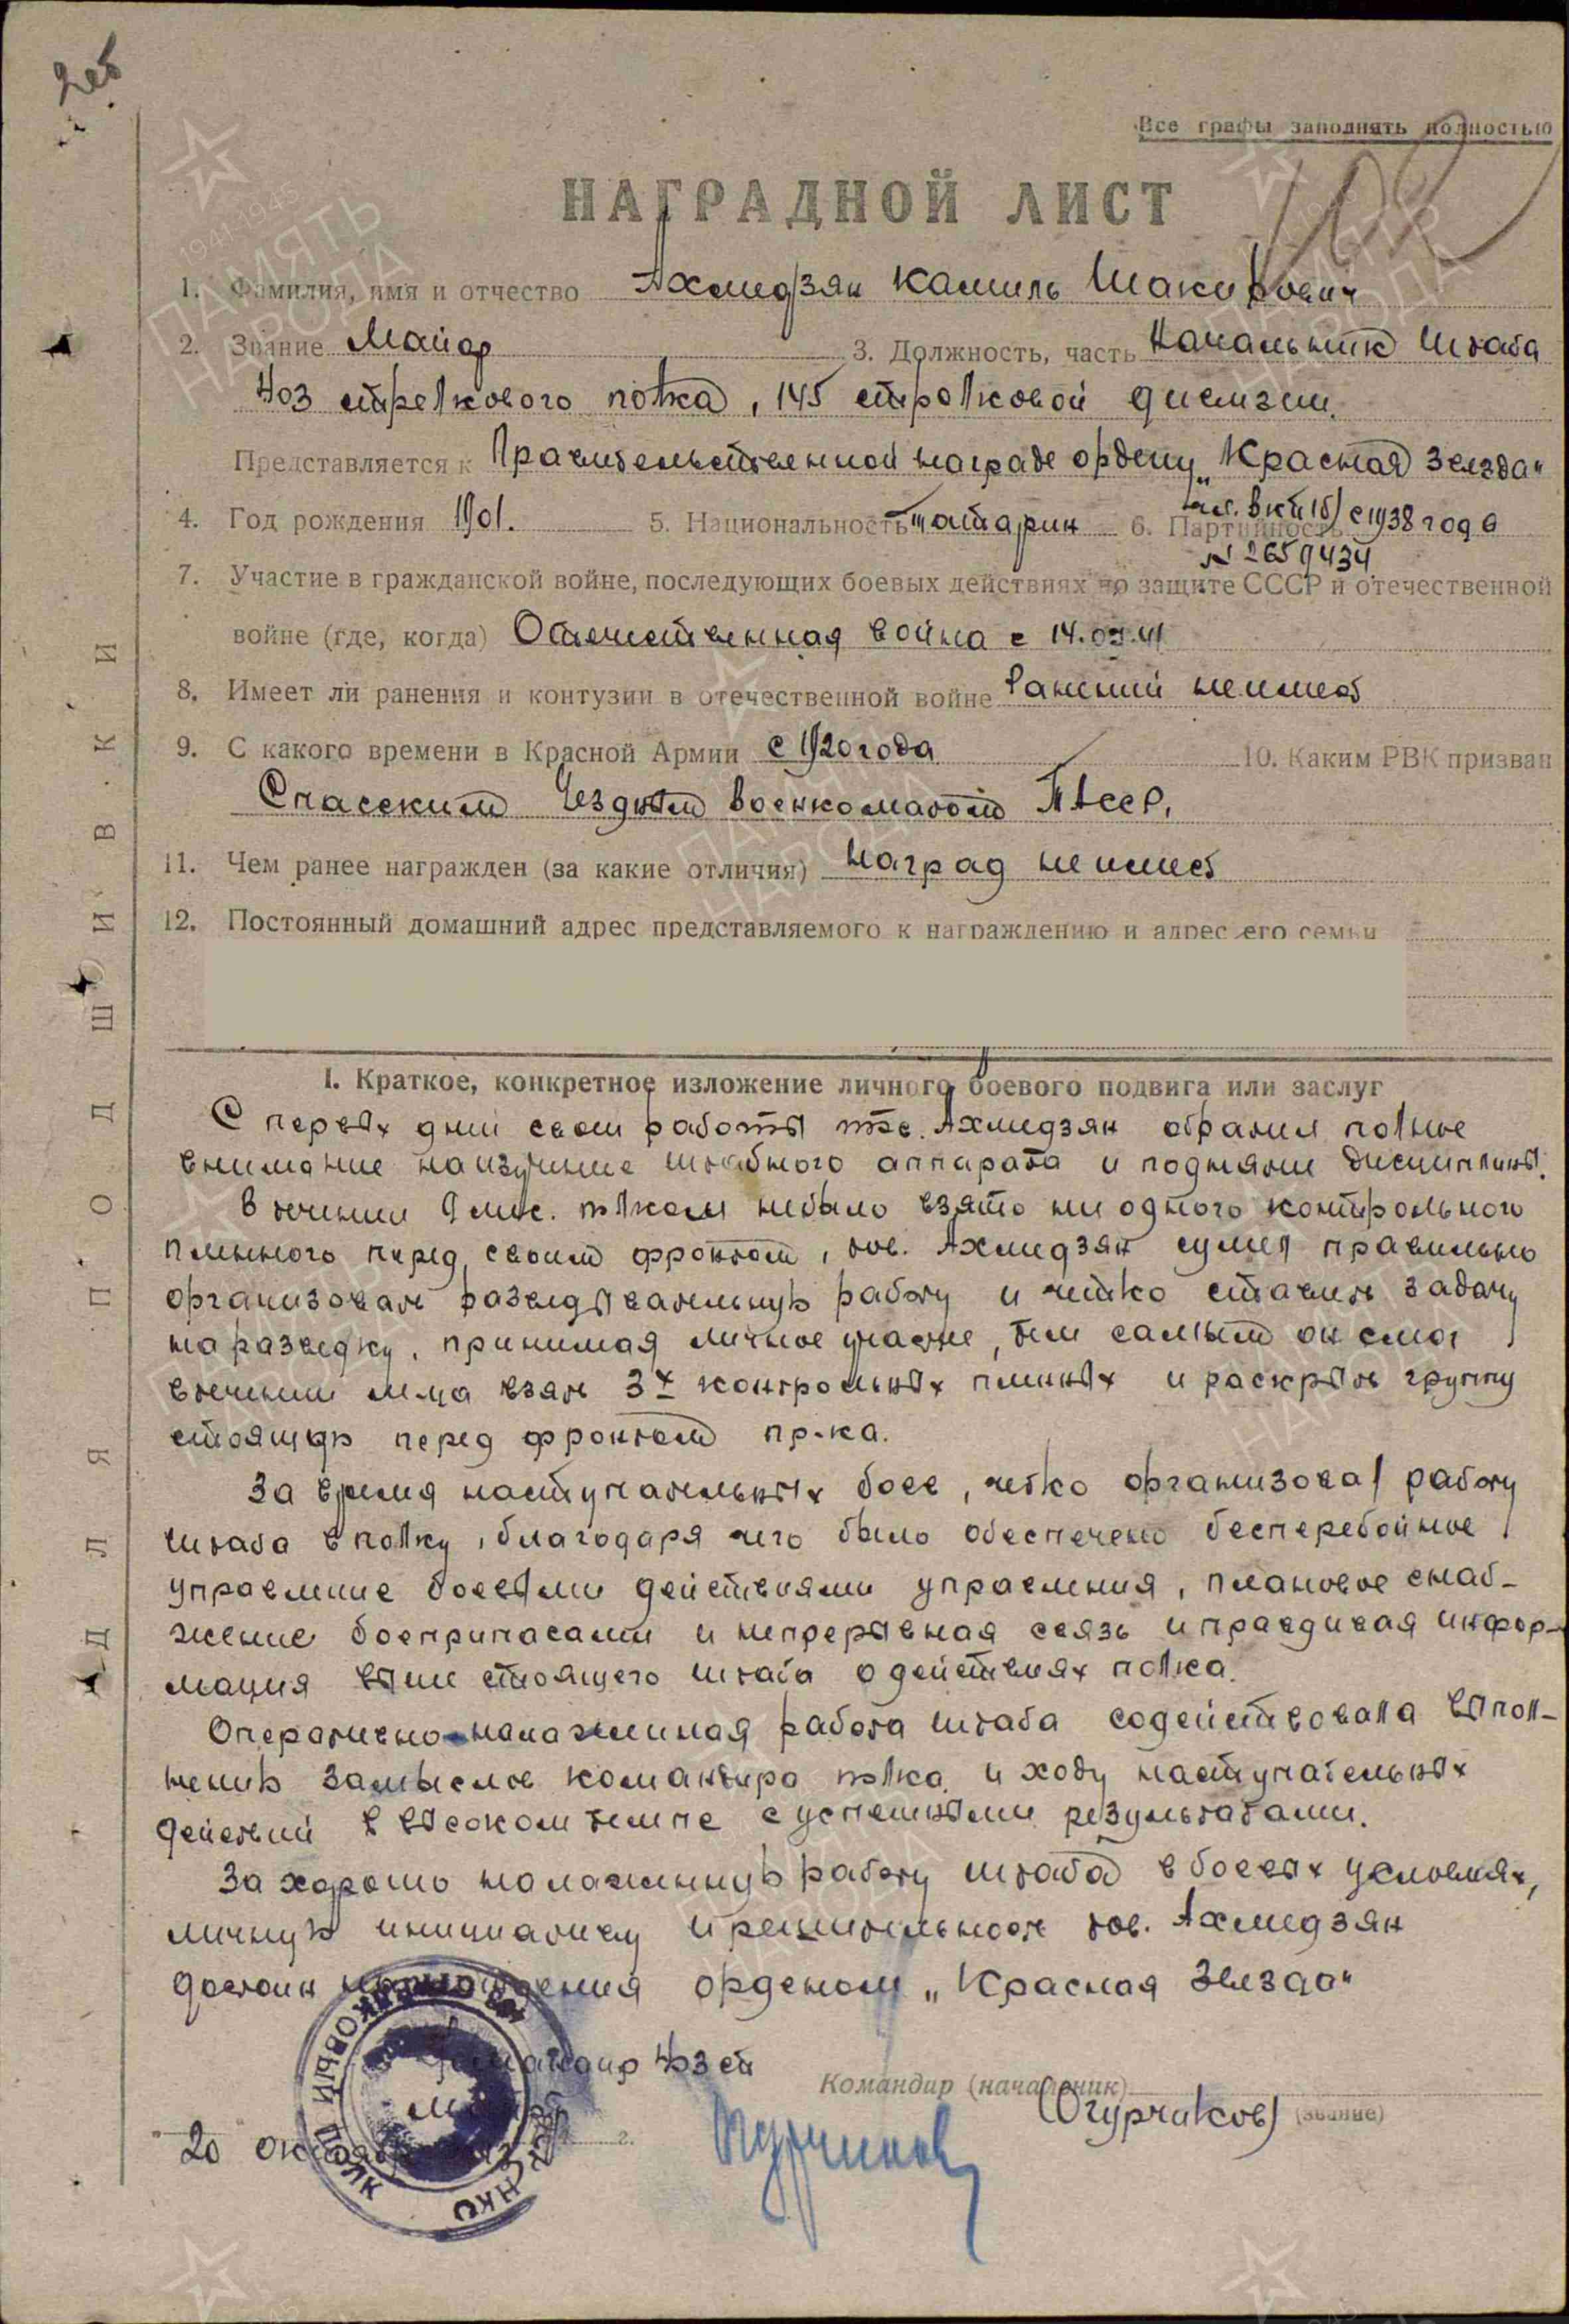 Все графы заполнять полностью
НАГРАДНОЙ ЛИСТ
1. Фамилия, имя и отчество Ахмидзян Камиль Шакирович
2. Звание Майор 3. Должность, часть Начальник штаба
403 стрелкового полка, 145 стрелковой дивизии.
Представляется к Правительственной награде ордену „Красная Звезда"
4. Год рождения 1901. 5. Национальность татарин 6. Партийность чл. ВКП(б) с 1938 года
N 2659434
7. Участие в гражданской войне, последующих боевых действиях по защите СССР и отечественной
войне (где, когда) Отечественная война с 14.07.41
8. Имеет ли ранения и контузии в отечественной войне Ранений не имеет
9. С какого времени в Красной Армии с 1920 года 10. Каким РВК призван
Спасским Уездным военкоматом ТАССР,
11. Чем ранее награжден (за какие отличия) наград не имеет
12. Постоянный домашний адрес представляемого к награждению и адрес его семьи
ДЛЯ ПОДШИВКИ
I. Краткое, конкретное изложение личного боевого подвига или заслуг
С первых дней своей работы тов. Ахмидзян обратил полное
внимание на изучение штабного аппарата и поднятие дисциплины.
В течении 9 мес. полком небыло взято ни одного контрольного
пленного перед своим фронтом, тов. Ахмидзян сумел правильно
организовать разведывательную работу и четко ставить задачу
на разведку, принимая личное участие, тем самым он смог
втечении м-ца взять 3х контрольных пленных и раскрыть группу
стоящую перед фронтом пр-ка.
За время наступательных боев, четко организовал работу
штаба в полку, благодаря чего было обеспечено бесперебойное
управление боевыми действиями управления, плановое снаб-
жение боеприпасами и непрерывная связь и правдивая инфор-
мация выше стоящего штаба о действиях полка.
Оперативно-налаженная работа штаба содействовала выпол-
нению замыслов командира полка и ходу наступательных
действий в высоком темпе с успешными результатами.
За хорошо налаженную работу штаба в боевых условиях,
личную инициативу и решительность тов. Ахмидзян
достоин награждения орденом „Красная Звезда"
Командир 403 сп
Командир (начальник)
майор (Огурчиков) (звание)
20 октября г.
СТРЕЛКОВЫЙ ПОЛК
НКО
ПАМЯТЬ НАРОДА
1941-1945